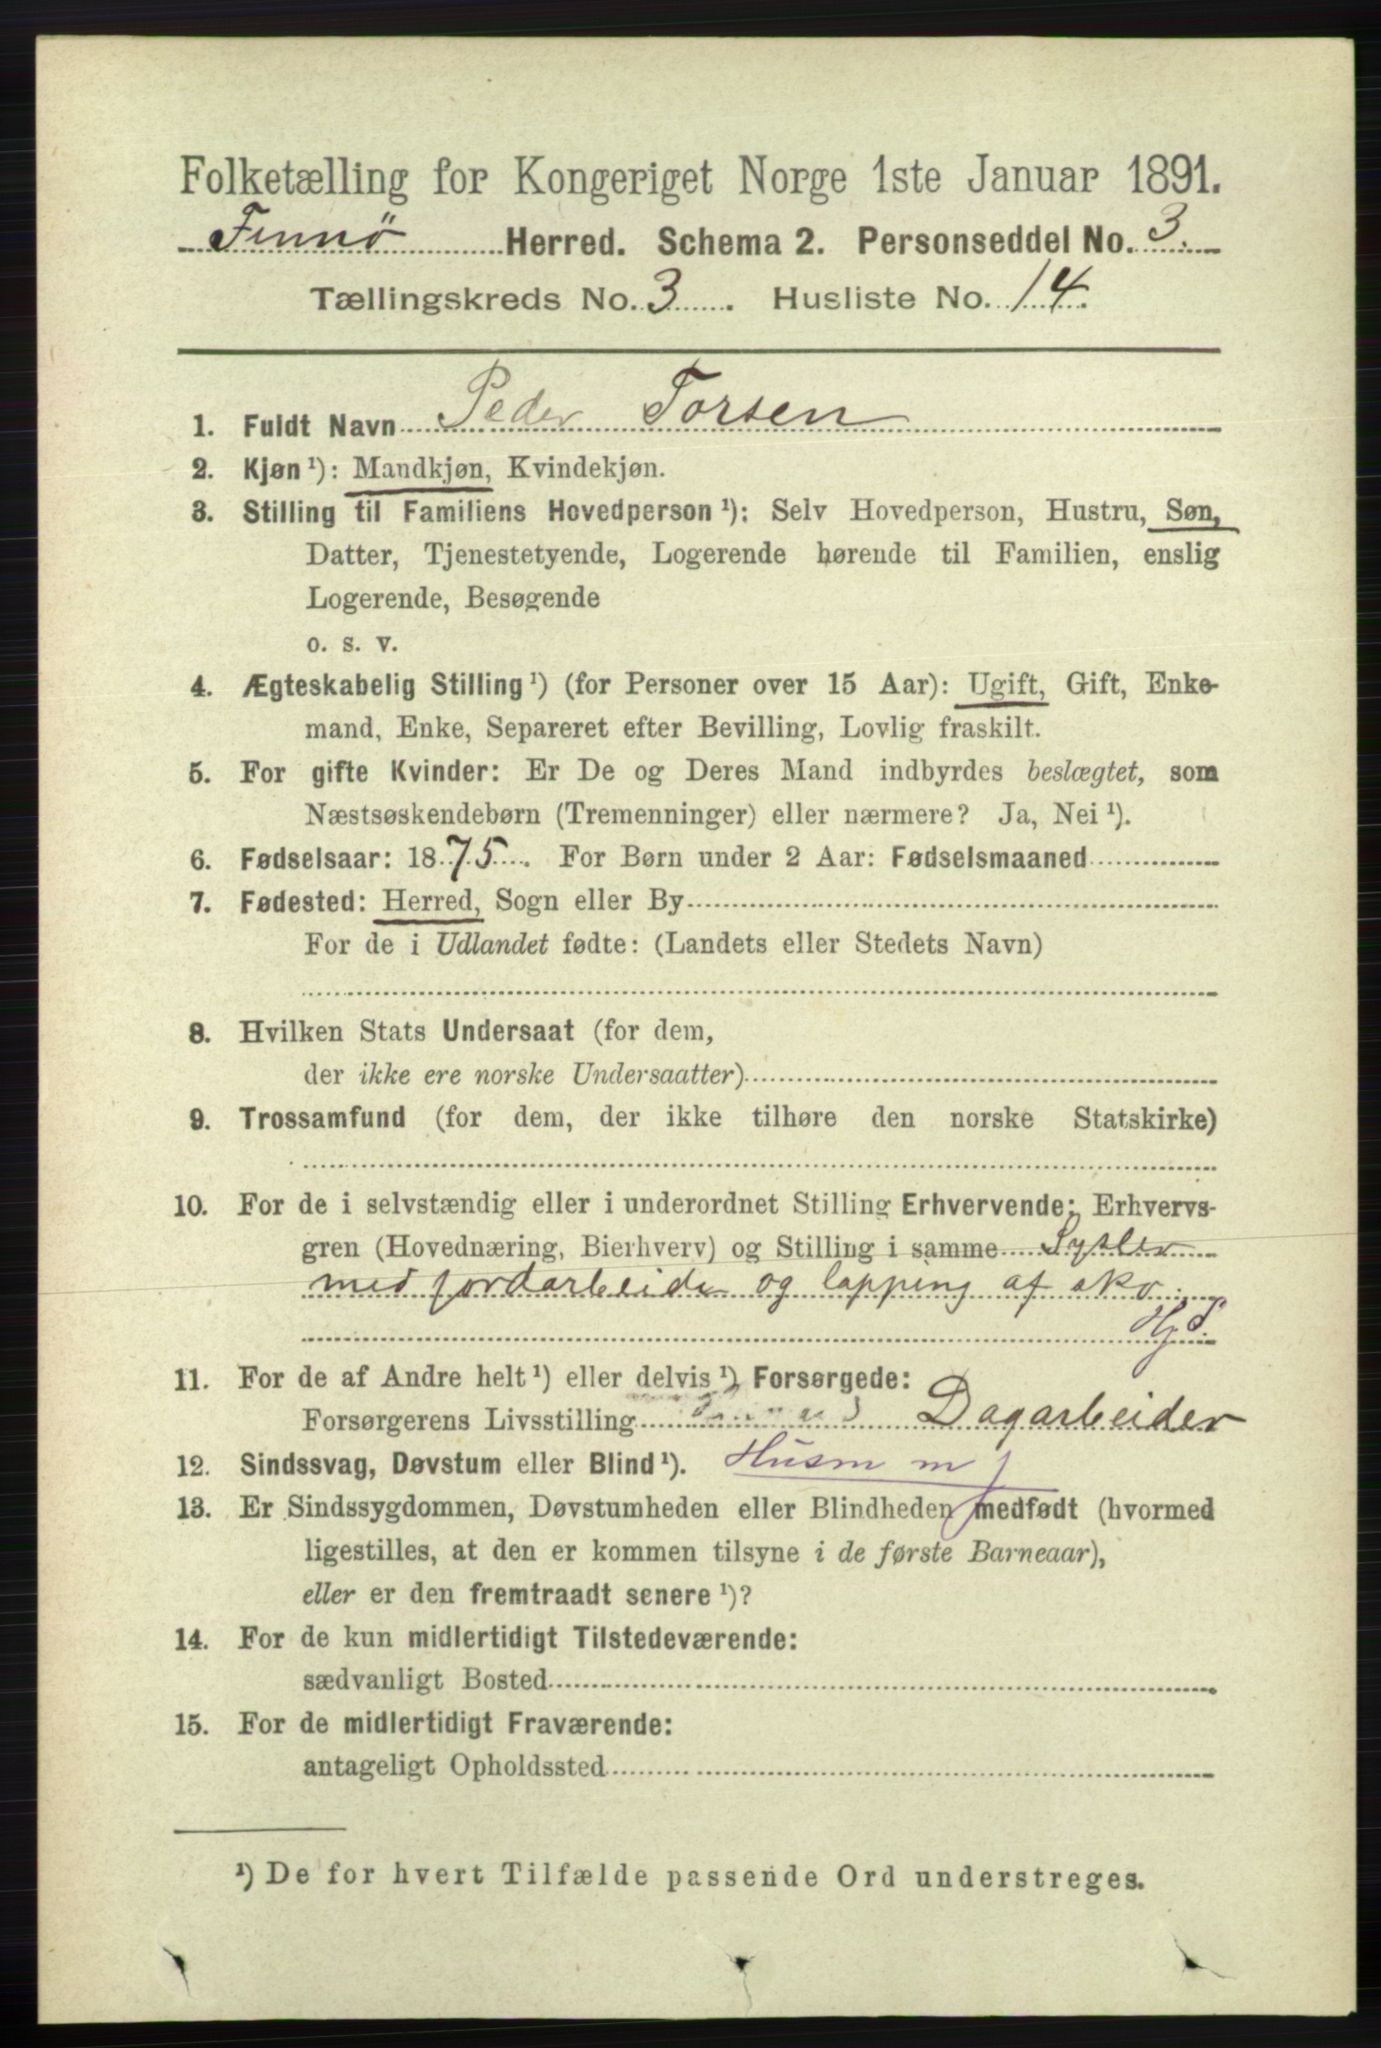 Folketælling for Kongeriget Norge 1ste Januar 1891.
Finnö Herred. Schema 2. Personseddel No. 3.
Tællingskreds No. 3. Husliste No. 14.
1. Fuldt Navn Peder Torsen
2. Kjøn ¹): Mandkjøn, Kvindekjøn.
3. Stilling til Familiens Hovedperson ¹): Selv Hovedperson, Hustru, Søn,
Datter, Tjenestetyende, Logerende hørende til Familien, enslig
Logerende, Besøgende
o. s. v.
4. Ægteskabelig Stilling ¹) (for Personer over 15 Aar): Ugift, Gift, Enke-
mand, Enke, Separeret efter Bevilling, Lovlig fraskilt.
5. For gifte Kvinder: Er De og Deres Mand indbyrdes beslægtet, som
Næstsøskendebørn (Tremenninger) eller nærmere? Ja, Nei ¹).
6. Fødselsaar: 1875. For Børn under 2 Aar: Fødselsmaaned
7. Fødested: Herred, Sogn eller By
For de i Udlandet fødte: (Landets eller Stedets Navn)
8. Hvilken Stats Undersaat (for dem,
der ikke ere norske Undersaatter)
9. Trossamfund (for dem, der ikke tilhøre den norske Statskirke)
10. For de i selvstændig eller i underordnet Stilling Erhvervende: Erhvervs-
gren (Hovednæring, Bierhverv) og Stilling i samme Sysler
med jordarbeide og lapping af sko.
Hj. S.
11. For de af Andre helt ¹) eller delvis ¹) Forsørgede:
Forsørgerens Livsstilling Dagarbeider
12. Sindssvag, Døvstum eller Blind ¹). Husm m j
13. Er Sindssygdommen, Døvstumheden eller Blindheden medfødt (hvormed
ligestilles, at den er kommen tilsyne i de første Barneaar),
eller er den fremtraadt senere ¹)?
14. For de kun midlertidigt Tilstedeværende:
sædvanligt Bosted
15. For de midlertidigt Fraværende:
antageligt Opholdssted
¹) De for hvert Tilfælde passende Ord understreges.